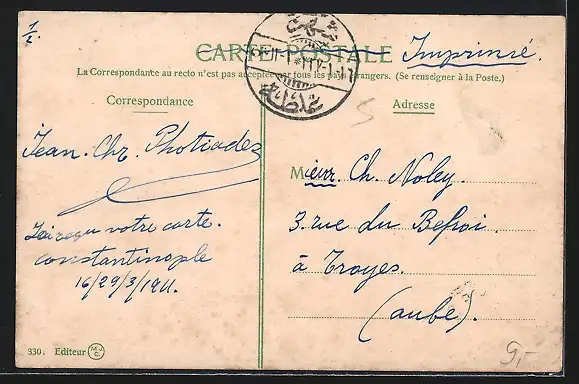 1/2
CARTE POSTALE Imprimé.
La Correspondance au recto n'est pas acceptée par tous les pays étrangers. (Se renseigner à la Poste.)
Correspondance
Adresse
Jean. Chr. Photiades
J'ai reçu votre carte.
Constantinople
16/29/3/1911.
Mieur. Ch. Noley.
3. rue du Befroi.
à Troyes.
(aube).
330. Editeur